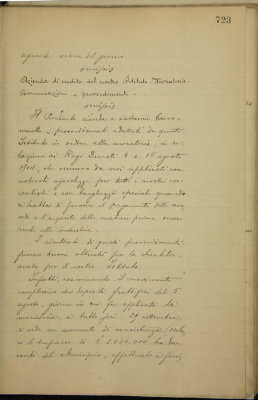 723
seguente ordine del giorno
omissis
Azienda di credito del nostro Istituto - Moratoria -
Comunicazioni e provvedimenti -
omissis
Il Presidente ricorda e
mente i provvedimenti adottati da questo
Istituto in ordine alla moratoria, in re-
lazione ai Regi Decreti 4 e 16 agosto
1914, che vennero da noi applicati con
notevoli agevolezze per tutti i nostri cor-
rentisti e con larghezza speciale quando
si tratta di favorire il pagamento delle mer-
cedi e l'acquisto delle materie prime occor-
renti alle industrie.
I risultati di questi provvedimenti
furono buoni altresì per la clientela,
anche per il nostro Istituto.
Infatti, esaminando il movimento
complessivo dei depositi fruttiferi dal 5
agosto, giorno in cui fu applicata la
moratoria, a tutto ieri, 29 settembre,
si vede un aumento di consistenza (dedot-
to il trapasso di £ 1.000.000
del Municipio, effettuato a fini